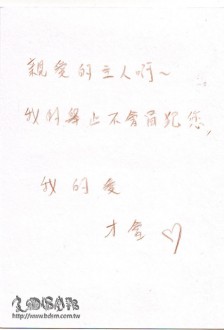 親愛的主人啊～
我的舉止不會冒犯您,
我的愛
才會♡
http://www.bdsm.com.tw